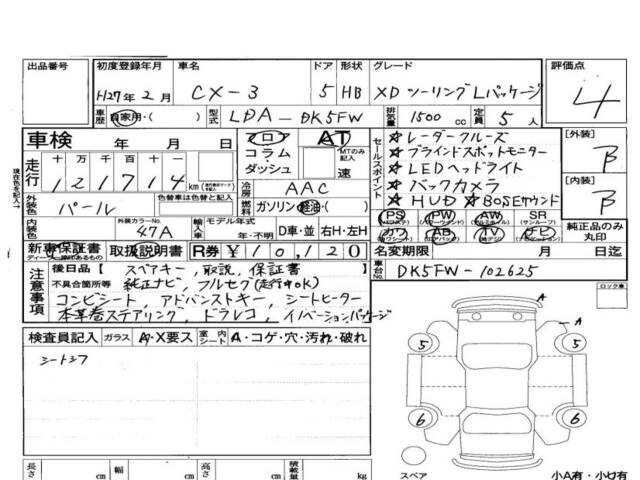 出品番号 初度登録年月 車名 ドア 形状 グレード 評価点
H27年2月 CX-3 5 HB XDツーリングLパッケージ 4
車歴 自家用・( ) 型式 LDA-DK5FW 排気量 1500 cc 定員 5人
車検 年 月 日 ロ AT セールスポイント ☆レーダークルーズ [外装]
現在色を記入→ 走行 十 万 千 百 十 一 コラム・ダッシュ MTのみ記入 速 ☆ブラインドスポットモニター B
121714 km ☆LEDヘッドライト [内装]
冷房 AAC ☆バックカメラ B
外装色 パール 色替車は色替と記入 燃料 ガソリン・軽油・( ) ☆HUD ☆BOSEサウンド
PS PW AW SR
内装色 外装カラーNo. 47A 輸入車 モデル年式 年・不明 D車・並 右H・左H カワ AB TV ナビ 純正品のみ丸印
新車保証書 取扱説明書 R券 ¥10,120 名変期限 月 日迄
注意事項 後日品【 スペアキー,取説,保証書 車台No. DK5FW-102625
不具合箇所等 純正ナビ,フルセグ(走行中OK) ロック車
コンビシート,アドバンストキー,シートヒーター
本革巻ステアリング,ドラレコ,イノベーションパッケージ
検査員記入 ガラス A・X要ス 室内 シート A・コゲ・穴・汚れ・破れ
A
A
5 5
6 6
スペア 小A有・小U有
長さ cm 幅 cm 高さ cm 積載量 kg